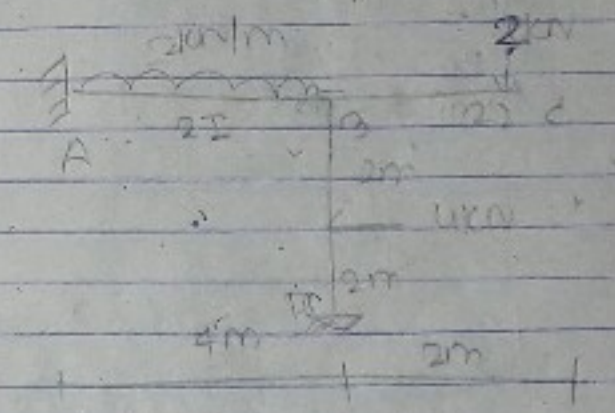 2kN/m 2kN
2I B C
A
2m
4kN
2m
4m 2m